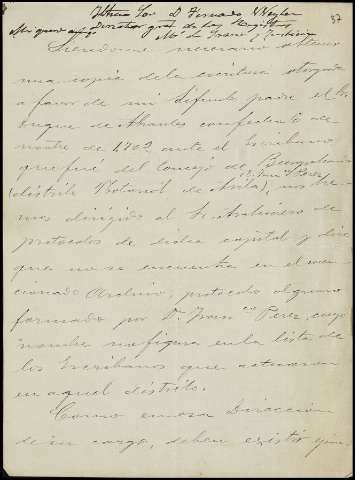 Iltmo Sor D. Fernando Weyler
37
Mi querido amigo Director gral de los Registros
Mº de Gracia y Justicia
Siendome necesario obtener
una copia de la escritura otorgada
a favor de mi difunto padre el
Duque de Abrantes con fecha de
de 1702 ante el Escribano
que fué del Concejo de
Dn Juan Co Perez
(distrito Notarial de Avila), nos he-
mos dirigido al Sr Archivero de
protocolos de dicha capital y dice
que no se encuentra en el men-
cionado Archivo, protocolo alguno
formado por D. Francco Perez, cuyo
nombre no figura en la lista de
los Escribanos que actuaron
en aquel distrito.
Como en esa Direccion
de su cargo, deben existir